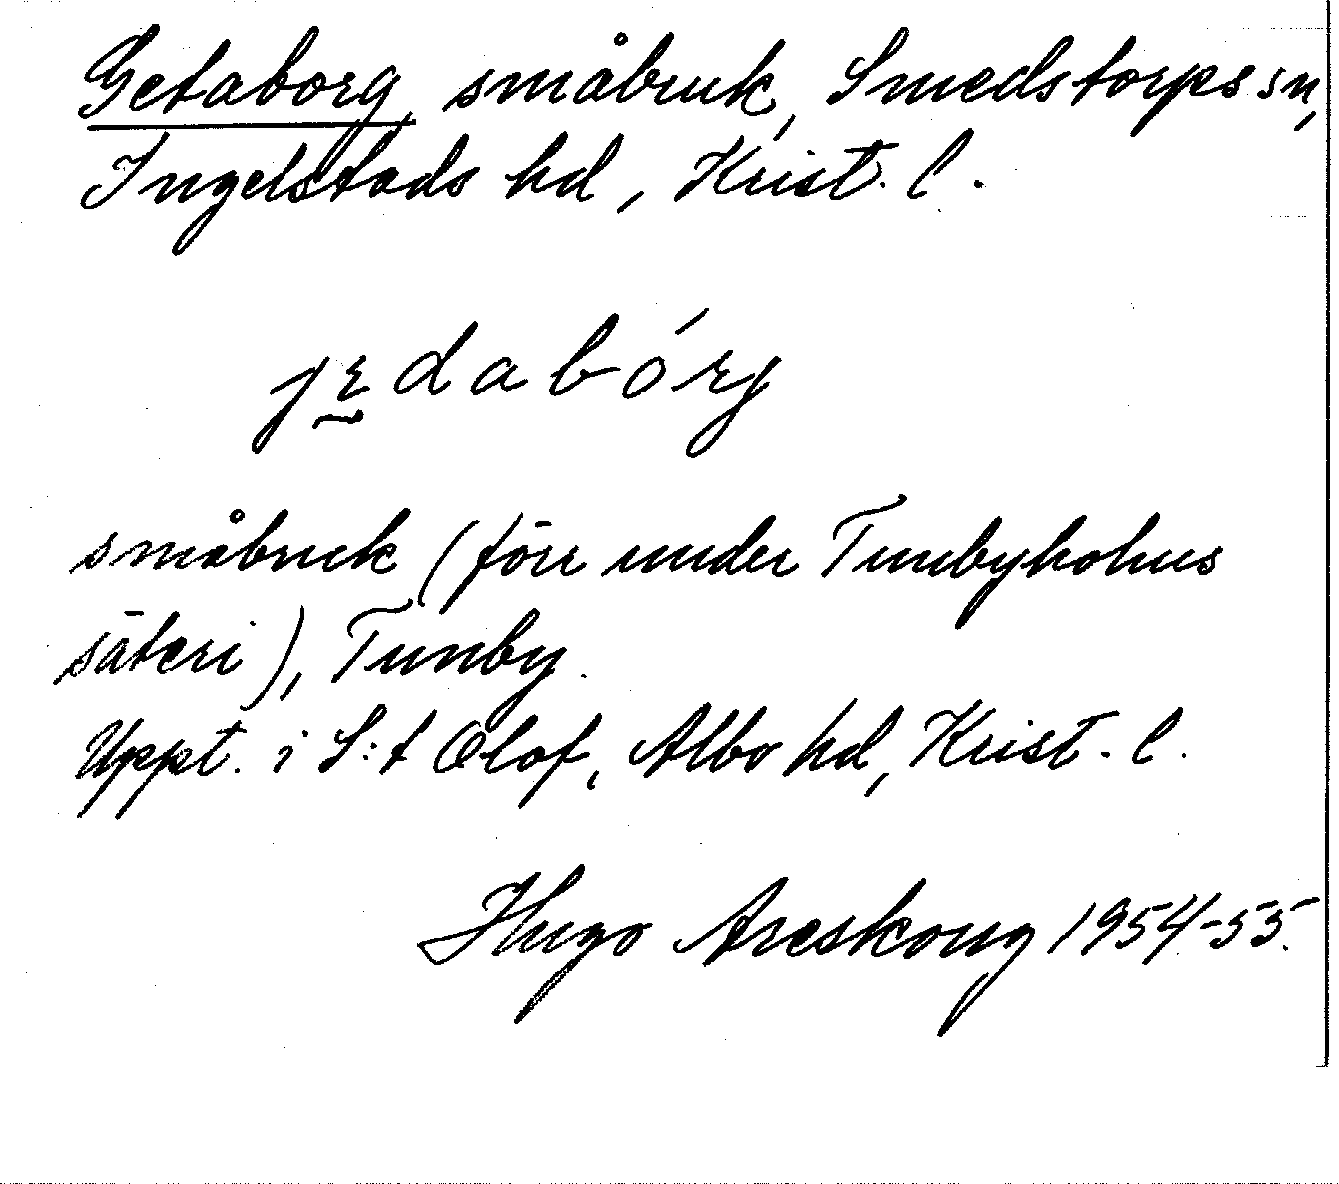 Getaborg, småbruk, Smedstorps sn,
Ingelstads hd, Krist. l.
jɛdabórj
småbruk (förr under Tunbyholms
säteri), Tunby.
Uppt. i S:t Olof, Albo hd, Krist. l.
Hugo Areskoug 1954-55.